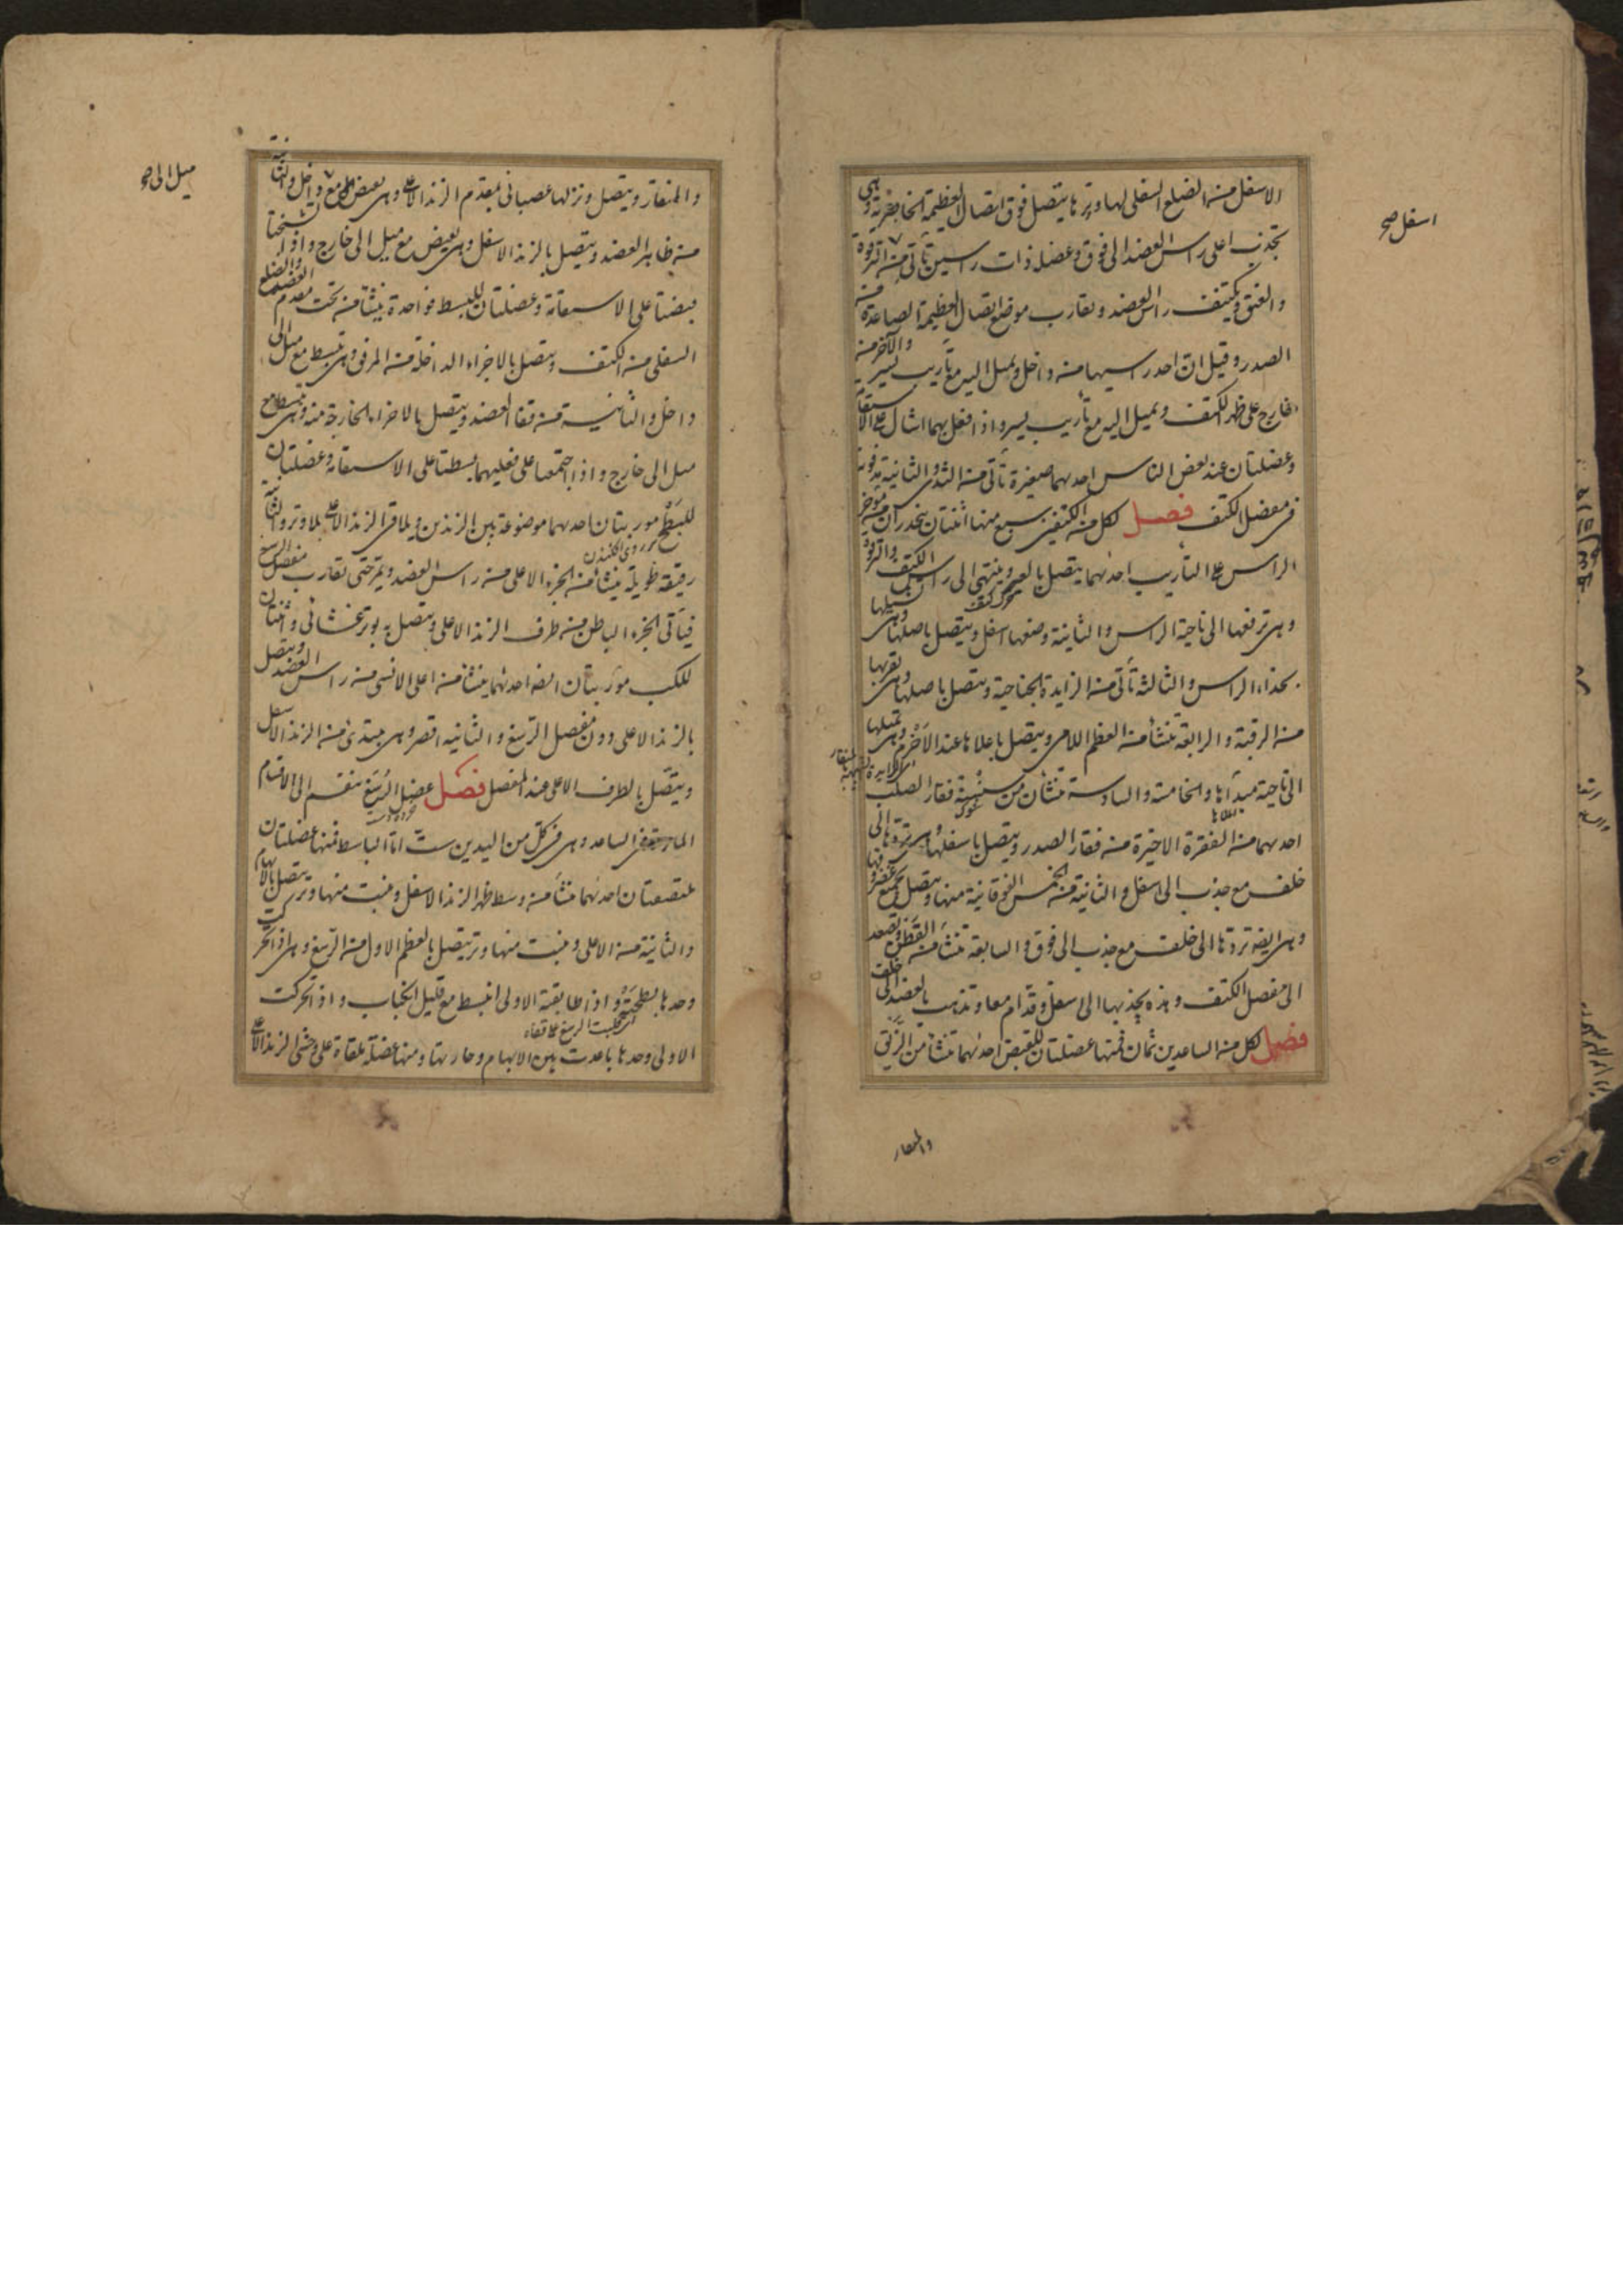 الاسفل من الضلع السفلى لها وترها يتصل فوق اتصال العظيمة الخاضرية وهى
تجذب اعلى راس العضد الى فوق وعضله ذات راسين تأتى من الترقوة
والعنق وتكتنف راس العضد وتقارب موضع اتصال العظيمة الصاعدة من
الصدر وقيل ان احد راسيها من داخل ويميل اليه مع تأريب يسير والآخر من
خارج على ظهر الكتف ويميل اليه مع تأريب يسير واذا فعل بهما اشال على الاستقامة
وعضلتان عند بعض الناس احديهما صغيرة تأتى من الثدى والثانية مدفونة
فى مفصل الكتف فصل لكل من الكتفين سبع منها اثنتان ينحدران من مؤخر
الراس على التأريب احدٰهما يتصل بالعير وينتهى الى راس الكتف والترقوة
وهى ترفعها الى ناحية الراس والثانية وضعها اسفل ويتصل باصلها وهى تشيلها
بحذاء الراس والثالثة تأتى من الزايدة الجناحية ويتصل باصلها وهى تقربها
من الرقبة والرابعة تنشأ من العظم اللامى ويتصل باعلاها عند الاخرم وهى تميلها
الى ناحية مبدأها والخامسة والسادسة تنشأن من سنسنة فقار الصلب
احديهما من الفقرة الاخيرة من فقار الصدر ويتصل باسفلها وهى تردها الى
خلف مع جذب الى اسفل والثانية من الخمس الفوقانية منها ويتصل بجميع غضروفها
وهى ايضه تردها الى خلف مع جذب الى فوق والسابعة تنشأ من القطن وتصعد
الى مفصل الكتف وهذه يجذبها الى اسفل وقدام معا وتذهب بالعضد الى خلف
فصل لكل من الساعدين ثمان فمنها عضلتان للقبض احدٰهما تنشأ من الزيق
والمنقار
اسفل صح
والمنقار ويتصل وتر لها عصبانى بمقدم الزند الاعلى وهى تقبض مع داخل والثانية
من ظاهر العضد ويتصل بالزند الاسفل وهى تقبض مع ميل الى خارج واذا تشنجتا
قبضتا على الاستقامة وعضلتان للبسط فواحدة ينشأ من تحت مقدم العضد والضلع
السفلى من الكتف ويتصل بالاجزاء الداخلة من المرفق وهى تبسط مع ميل الى
داخل والثانية من قفا العضد ويتصل بالاجزاء الخارجة منه وهى تبسط مع
ميل الى خارج واذا اجتمعا على فعليهما بسطتا على الاستقامة وعضلتان
للبطح موربتان احديهما موضوعة بين الزندين ويلاقى الزند الاعلى بلا وتر والثانية
رقيقة طويلة ينشأ من الجزء الاعلى من راس العضد ويمر حتى تقارب مفصل الرسغ
فيأتى الجزء الباطن من طرف الزند الاعلى ويتصل به بوتر غشائى واثنتان
للكب موربتان ايضه احدٰهما ينشأ من اعلى الانسى من راس العضد ويتصل
بالزند الاعلى دون مفصل الرسغ والثانيه اقصر وهى مبتدئ من الزند الاسفل
ويتصل بالطرف الاعلى عند المفصل فصل عضل الرسغ ينقسم الى الاقسام
المارة فى الساعد وهى فى كل من اليدين ست اما الباسط فمنها عضلتان
ملتصقتان احدٰهما تنشأ من وسط ظهر الزند الاسفل ونبت منها وتر يتصل بالابهام
والثانية من الاعلى ونبت منها وتر يتصل بالعظم الاول من الرسغ وهى اذا تحركت
وحدها بطحته واذا طابقة الاولى انبسط مع قليل انكباب واذا تحركت
الاولى وحدها باعدت بين الابهام وجارتها ومنها عضلة ملقاة على وحشى الزند الاعلى
ميل الى صح